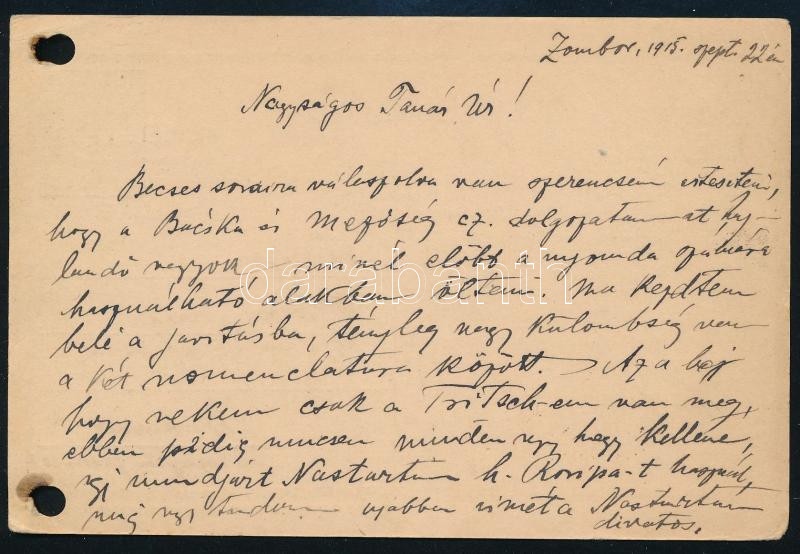 Zombor, 1915. szept. 22én
Nagyságos Tanár Úr!
Becses soraira válaszolva van szerencsém értesíteni,
hogy a Bácska és Mezőség cz. dolgozatomat haj-
landó vagyok minél előbb a nyomda számára
használható alakban önteni. Ma kezdtem
belé a javításba, tényleg nagy külömbség van
a két nomenclatura között. – Az a baj
hogy nekem csak a Fritsch-em van meg,
ebben pedig nincsen minden úgy hogy kellene,
így mindjárt Nasturtium h. Roripa-t használ,
míg úgy tudom ujabban ismét a Nasturtium
divatos.
darabanth